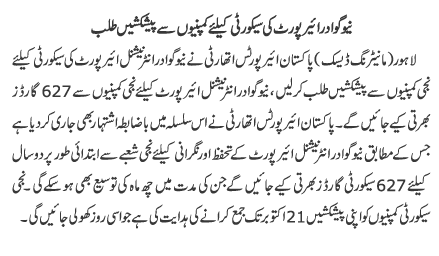 نیو گوادر ائیرپورٹ کی سیکورٹی کیلئے کمپنیوں سے پیشکشیں طلب
لاہور(مانیٹرنگ ڈیسک) پاکستان ائیرپورٹس اتھارٹی نے نیو گوادر انٹرنیشنل ائیرپورٹ کی سیکورٹی کیلئے
نجی کمپنیوں سے پیشکشیں طلب کر لیں، نیو گوادر انٹرنیشنل ائیرپورٹ کیلئے نجی کمپنیوں سے 627 گارڈز
بھرتی کیے جائیں گے۔ پاکستان ائیرپورٹس اتھارٹی نے اس سلسلہ میں باضابطہ اشتہار بھی جاری کر دیا ہے
جس کے مطابق نیو گوادر انٹرنیشنل ائیرپورٹ کے تحفظ اور نگرانی کیلئے نجی شعبے سے ابتدائی طور پر دو سال
کیلئے 627 سیکورٹی گارڈز بھرتی کیے جائیں گے جن کی مدت میں چھ ماہ کی توسیع بھی ہو سکے گی۔ نجی
سیکورٹی کمپنیوں کو اپنی پیشکشیں 21 اکتوبر تک جمع کرانے کی ہدایت کی ہے جو اسی روز کھولی جائیں گی۔